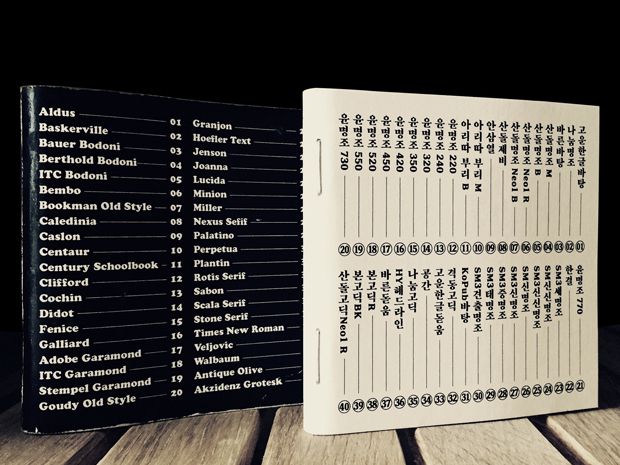 Aldus 01
Baskerville 02
Bauer Bodoni 03
Berthold Bodoni 04
ITC Bodoni 05
Bembo 06
Bookman Old Style 07
Caledinia 08
Caslon 09
Centaur 10
Century Schoolbook 11
Clifford 12
Cochin 13
Didot 14
Fenice 15
Galliard 16
Adobe Garamond 17
ITC Garamond 18
Stempel Garamond 19
Goudy Old Style 20
Granjon
Hoefler Text
Jenson
Joanna
Lucida
Minion
Miller
Nexus Sefif
Palatino
Perpetua
Plantin
Rotis Serif
Sabon
Scala Serif
Stone Serif
Times New Roman
Veljovic
Walbaum
Antique Olive
Akzidenz Grotesk
고운한글바탕 01
나눔명조 02
바른바탕 03
산돌명조 M 04
산돌명조 B 05
산돌명조 Neo1 R 06
산돌명조 Neo1 B 07
산돌제비 08
안삼열 09
아리따 부리 M 10
아리따 부리 B 11
윤명조 220 12
윤명조 240 13
윤명조 320 14
윤명조 350 15
윤명조 420 16
윤명조 450 17
윤명조 520 18
윤명조 550 19
윤명조 730 20
윤명조 770 21
한결 22
SM3세명조 23
SM신신명조 24
SM3신신명조 25
SM신명조 26
SM3신명조 27
SM3중명조 28
SM3태명조 29
SM3견출명조 30
KoPub바탕 31
격동고딕 32
고운한글돋움 33
공간 34
나눔고딕 35
HY헤드라인 36
바른돋움 37
본고딕R 38
본고딕BK 39
산돌고딕Neo1 R 40